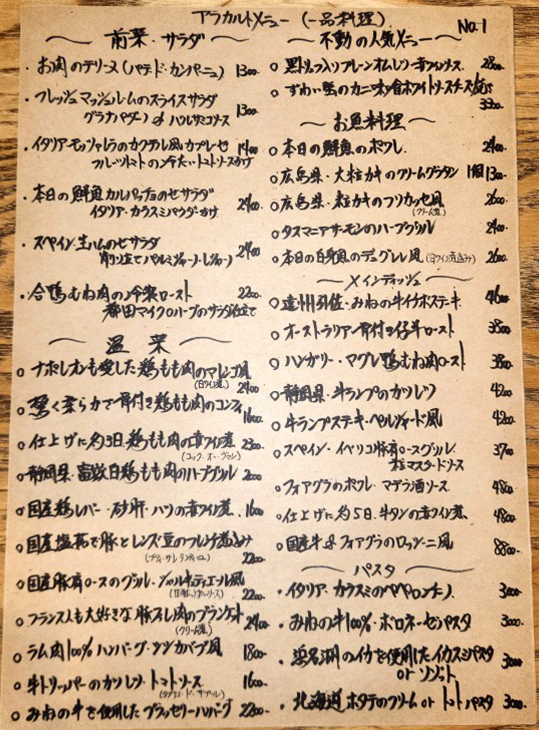 アラカルトメニュー (一品料理)
No.1
前菜・サラダ
・お肉のテリーヌ(パテ・ド・カンパーニュ) 1300-
・フレッシュマッシュルームのスライスサラダ
グラナパダーノ & バルサミコソース 1300-
・イタリアモッツァレラのカクテル風カプレーゼ 1400-
フルーツトマトの冷たいトマトソースがけ
・本日の鮮魚カルパッチョのせサラダ
イタリア・カラスミパウダーかけ 2400-
・スペイン生ハムのせサラダ
削り立てパルミジャーノ・レジャーノ 2400-
・合鴨むね肉の冷製ロースト 2200-
都田マイクロハーブのサラダ仕立て
温菜
○ナポレオンも愛した鶏もも肉のマレンゴ風
(白ワイン煮) 2400-
○驚く柔らかで骨付き鶏もも肉のコンフィ 1600-
○仕上げに約3日鶏もも肉の赤ワイン煮 2300-
(コック・オー・ヴァン)
○静岡県・富士の鶏もも肉のハーブグリル 2000-
○国産鶏レバー・砂肝・ハツの赤ワイン煮 1600-
○国産塩漬け豚とレンズ豆のフレンチ煮込み
2200-
○国産豚肩ロースのグリル・シャルキュティエール風
2200-
○フランス人も大好きな豚スレ肉のブランケット
(クリーム煮) 2400-
○ラム肉100%ハンバーグ・タジカバブ風 1800-
○牛トリッパーのカツレツ・トマトソース 1600-
○みねの牛を使用したブラッセリーハンバーグ 2200-
不動の人気メニュー
○黒トリュフ入りプレーンオムレツ・赤ワインソース 2800-
○ずわい蟹のカニ味噌ホワイトソースチーズ焼き
3300-
お魚料理
○本日の鮮魚のポワレ 2400-
○広島県・大粒カキのクリームグラタン 1個1300-
○広島県・粒カキのフリカッセ風 2600-
(クリーム煮)
○タスマニアサーモンのハーブグリル 2400-
○本日の白身魚のデュグレレ風(白ワイン煮込み) 2600-
メインディッシュ
・遠州引佐・みねの牛イチボステーキ 4600-
・オーストラリアン骨付き仔羊ロースト 3800-
○ハンガリー・マグレ鴨むね肉ロースト 3800-
○静岡県・牛ランプのカツレツ 4200-
○牛ランプステーキ・ペルシャード風 4200-
○スペイン・イベリコ豚肩ロースグリル 3700-
粒マスタードソース
○フォアグラのポワレ・マデラ酒ソース 4800-
○仕上げに約5日・牛タンの赤ワイン煮 4800-
○国産牛&フォアグラのロッシーニ風 8800-
パスタ
・イタリア・カラスミのペペロンチーノ 3000-
・みねの牛100%・ボロネーゼパスタ 3000-
・浜名湖のイカを使用したイカスミパスタ
or リゾット 3000-
・北海道ホタテのクリーム or トマトパスタ 3000-